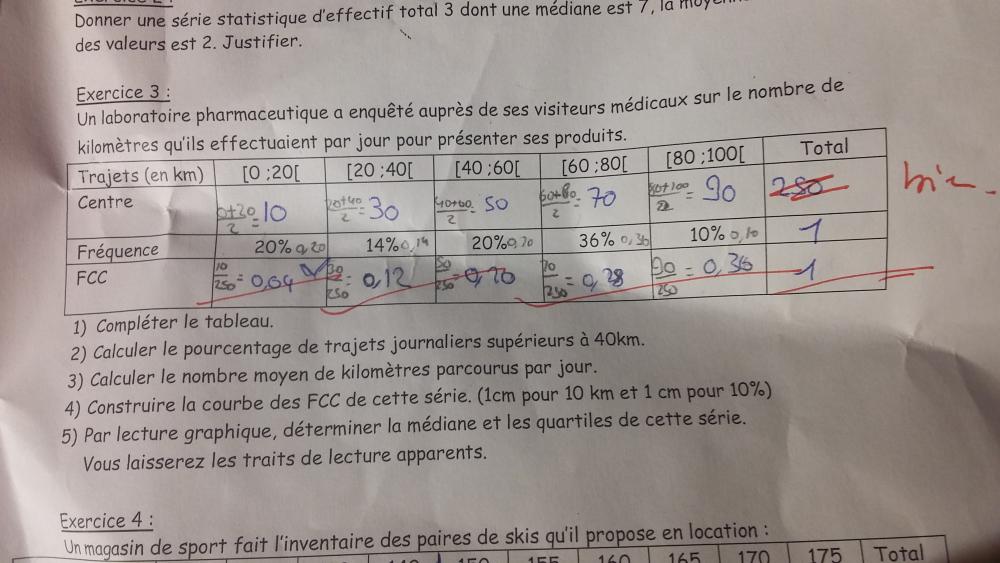 Donner une série statistique d'effectif total 3 dont une médiane est 7, la
des valeurs est 2. Justifier.
Exercice 3 :
Un laboratoire pharmaceutique a enquêté auprès de ses visiteurs médicaux sur le nombre de
kilomètres qu'ils effectuaient par jour pour présenter ses produits.
Trajets (en km) [0 ;20[ [20 ;40[ [40 ;60[ [60 ;80[ [80 ;100[ Total
Centre 0+20/2=10 20+40/2=30 40+60/2=50 60+80/2=70 80+100/2=90 250
bien
Fréquence 20% 0,20 14% 0,14 20% 0,20 36% 0,36 10% 0,10 1
FCC 10/250=0,04 30/250=0,12 50/250=0,20 70/250=0,28 90/250=0,36 1
1) Compléter le tableau.
2) Calculer le pourcentage de trajets journaliers supérieurs à 40km.
3) Calculer le nombre moyen de kilomètres parcourus par jour.
4) Construire la courbe des FCC de cette série. (1cm pour 10 km et 1 cm pour 10%)
5) Par lecture graphique, déterminer la médiane et les quartiles de cette série.
Vous laisserez les traits de lecture apparents.
Exercice 4 :
Un magasin de sport fait l'inventaire des paires de skis qu'il propose en location :
155 160 165 170 175 Total